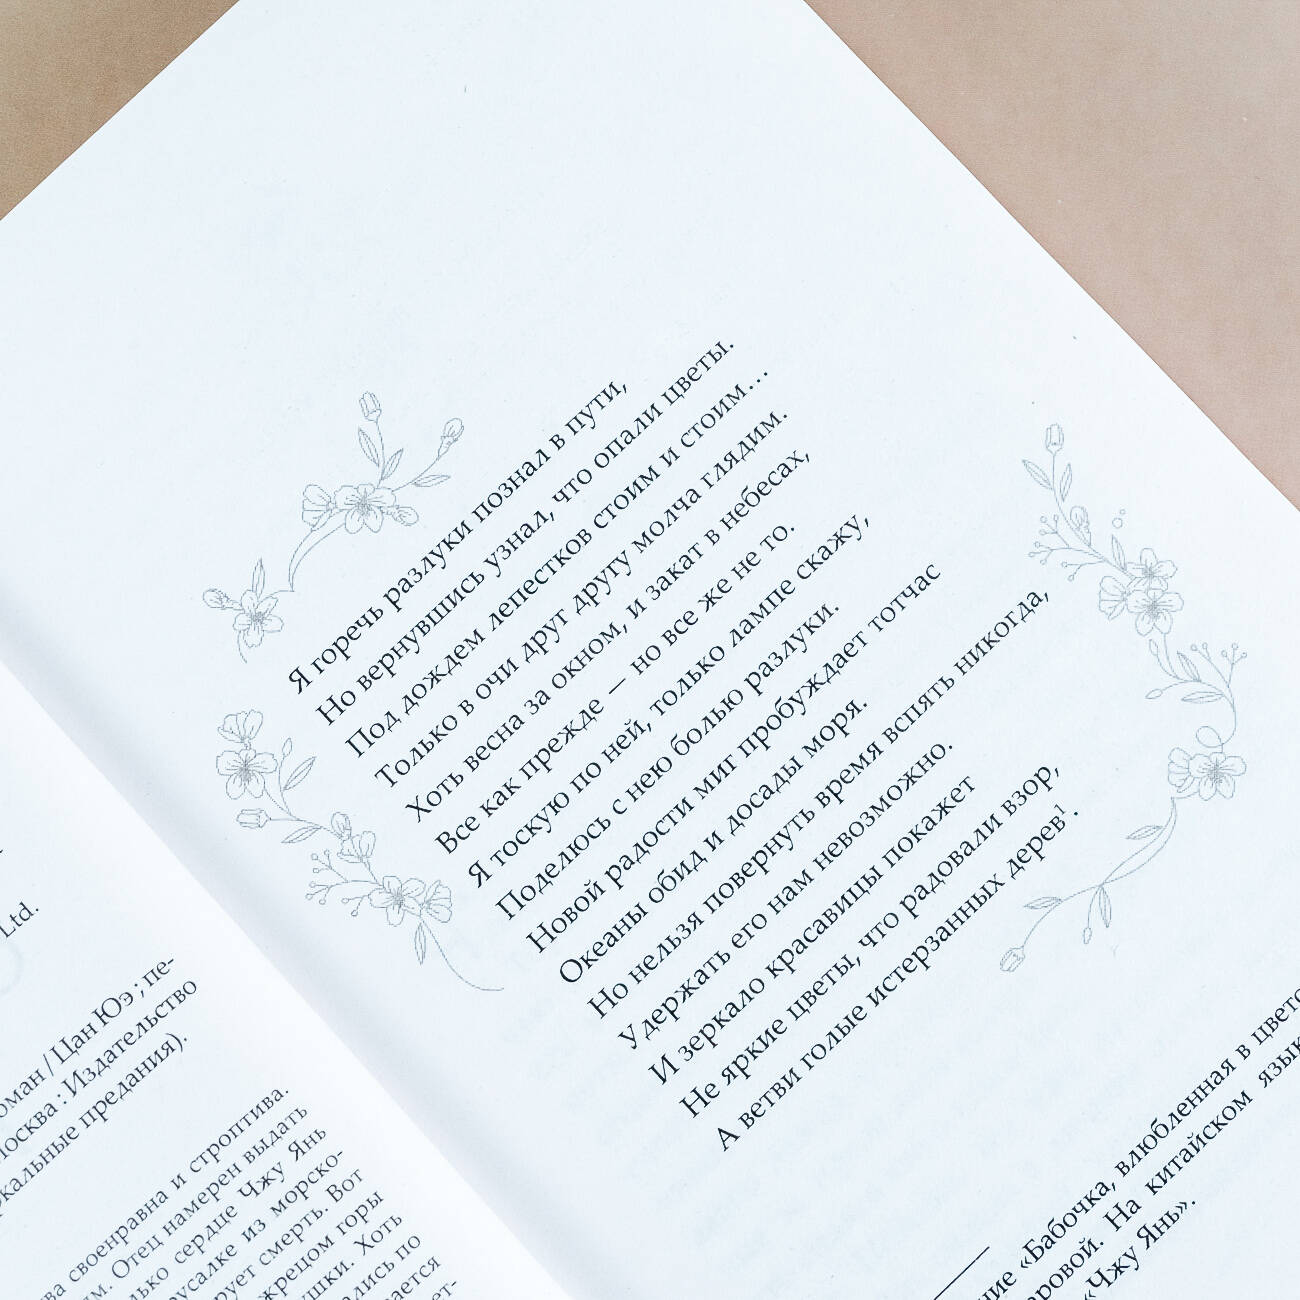 Ltd.
/ Цан Юэ ; пе-
: Издательство
предания).
своенравна и строптива.
Отец намерен выдать
сердце Чжу Янь
из морско-
смерть. Вот
горы
Хоть
по
Я горечь разлуки познал в пути,
Но вернувшись узнал, что опали цветы.
Под дождем лепестков стоим и стоим...
Только в очи друг другу молча глядим.
Хоть весна за окном, и закат в небесах,
Все как прежде — но все же не то.
Я тоскую по ней, только лампе скажу,
Поделюсь с нею болью разлуки.
Новой радости миг пробуждает тотчас
Океаны обид и досады моря.
Но нельзя повернуть время вспять никогда,
Удержать его нам невозможно.
И зеркало красавицы покажет
Не яркие цветы, что радовали взор,
А ветви голые истерзанных дерев¹.
«Бабочка, влюбленная в
На китайском
«Чжу Янь».